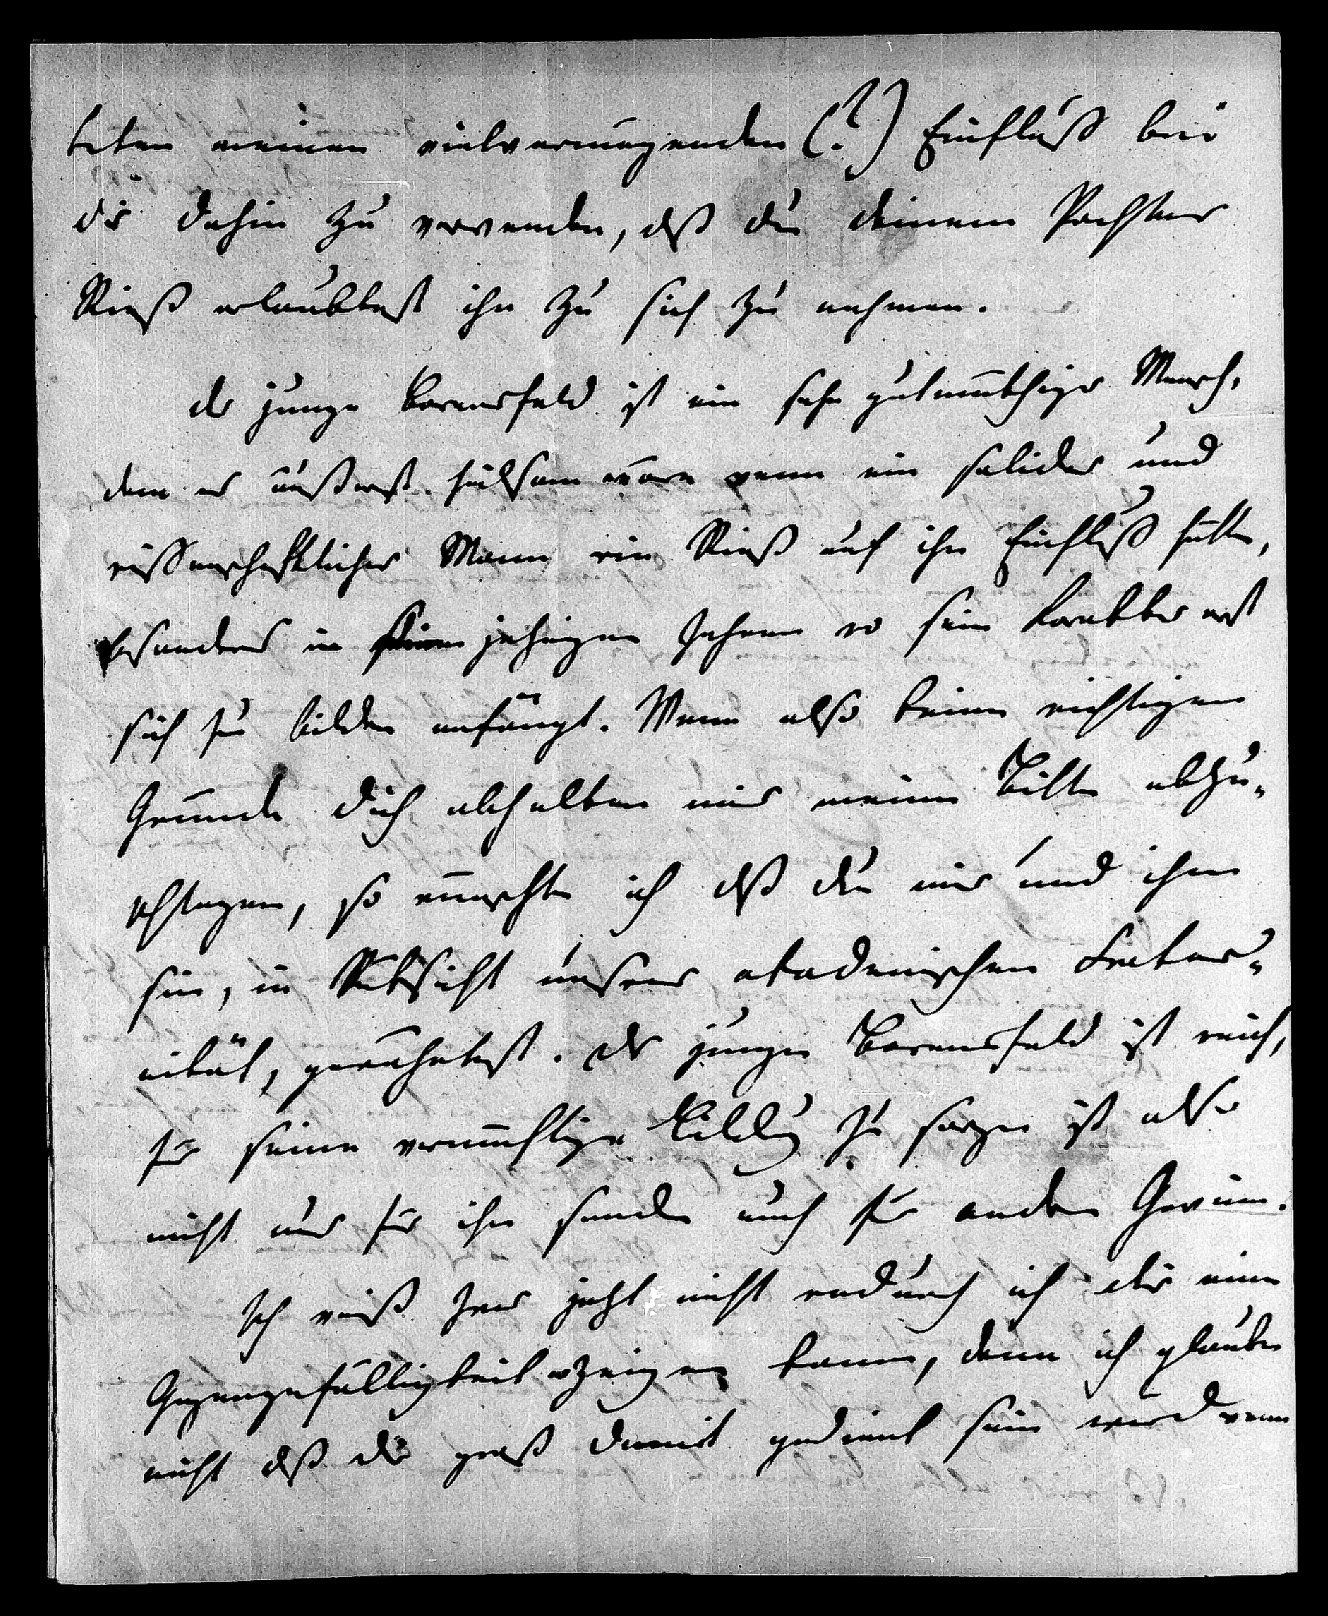 beten meinen vielvermögenden (?) Einfluß bei
dir dahin zu verwenden, dß du deinem Pachter
Rieß erlaubtest ihn zu sich zu nehmen.
der junge Bornsfeld ist ein sehr gutmüthiger Mensch,
dem es äußerst heilsam wäre wenn ein solider und
wissenschaftlicher Mann wie Rieß auf ihn Einfluß hätte,
besonders in seinen jetzigen Jahren wo sein Karakter erst
sich zu bilden anfängt. Wenn also keine wichtigen
Gründe dich abhalten mir meine Bitte abzu-
schlagen, so wünschte ich dß du mir und ihm
sie, in Rücksicht unsrer akademischen Frater-
nität, gewährtest. der junge Bornsfeld ist reich,
für seine vernünftige Bildung zu sorgen ist also
nicht nur für ihn sondern auch für andere Gewinn.
Ich weiß zwar jetzt nicht wodurch ich dir eine
Gegengefälligkeit erzeigen kann, denn ich glaube
nicht dß dir groß damit gedient sein wird wenn